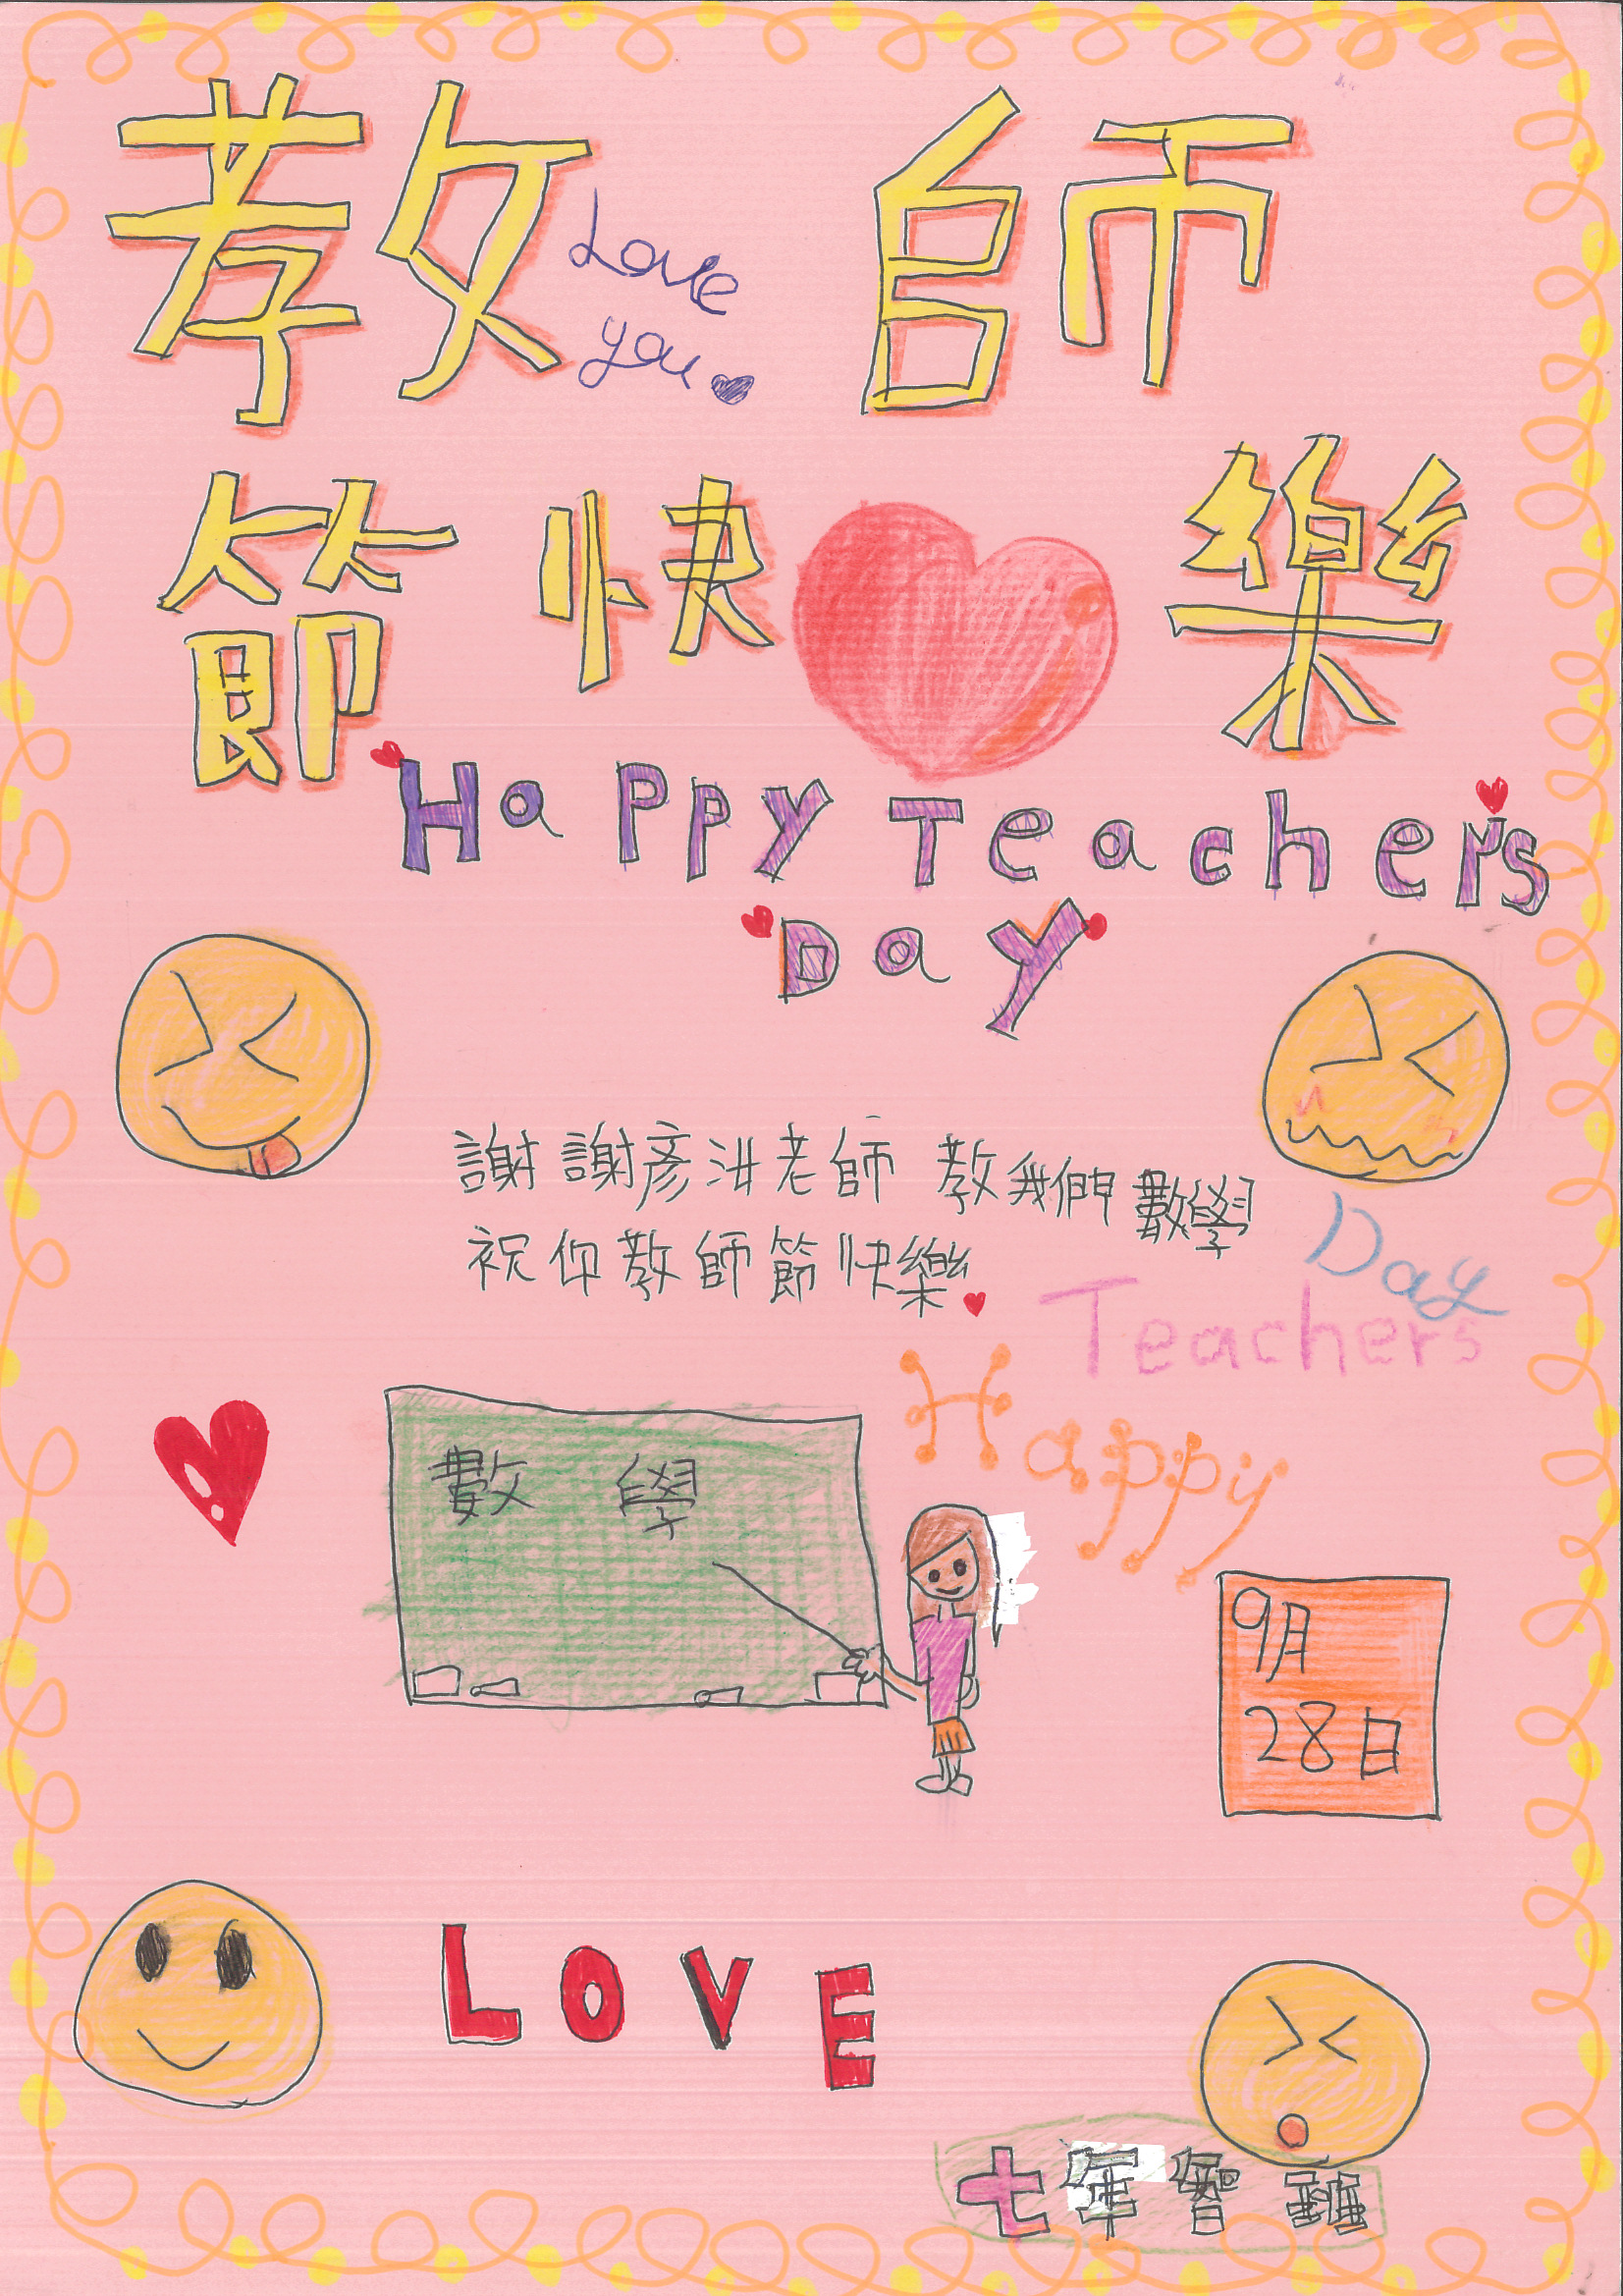 教師
Love
you
節快樂
Happy Teacher's
Day
謝謝彥汫老師 教我們數學
祝你教師節快樂
Day
Teachers
Happy
數學
9月
28日
LOVE
七年智班